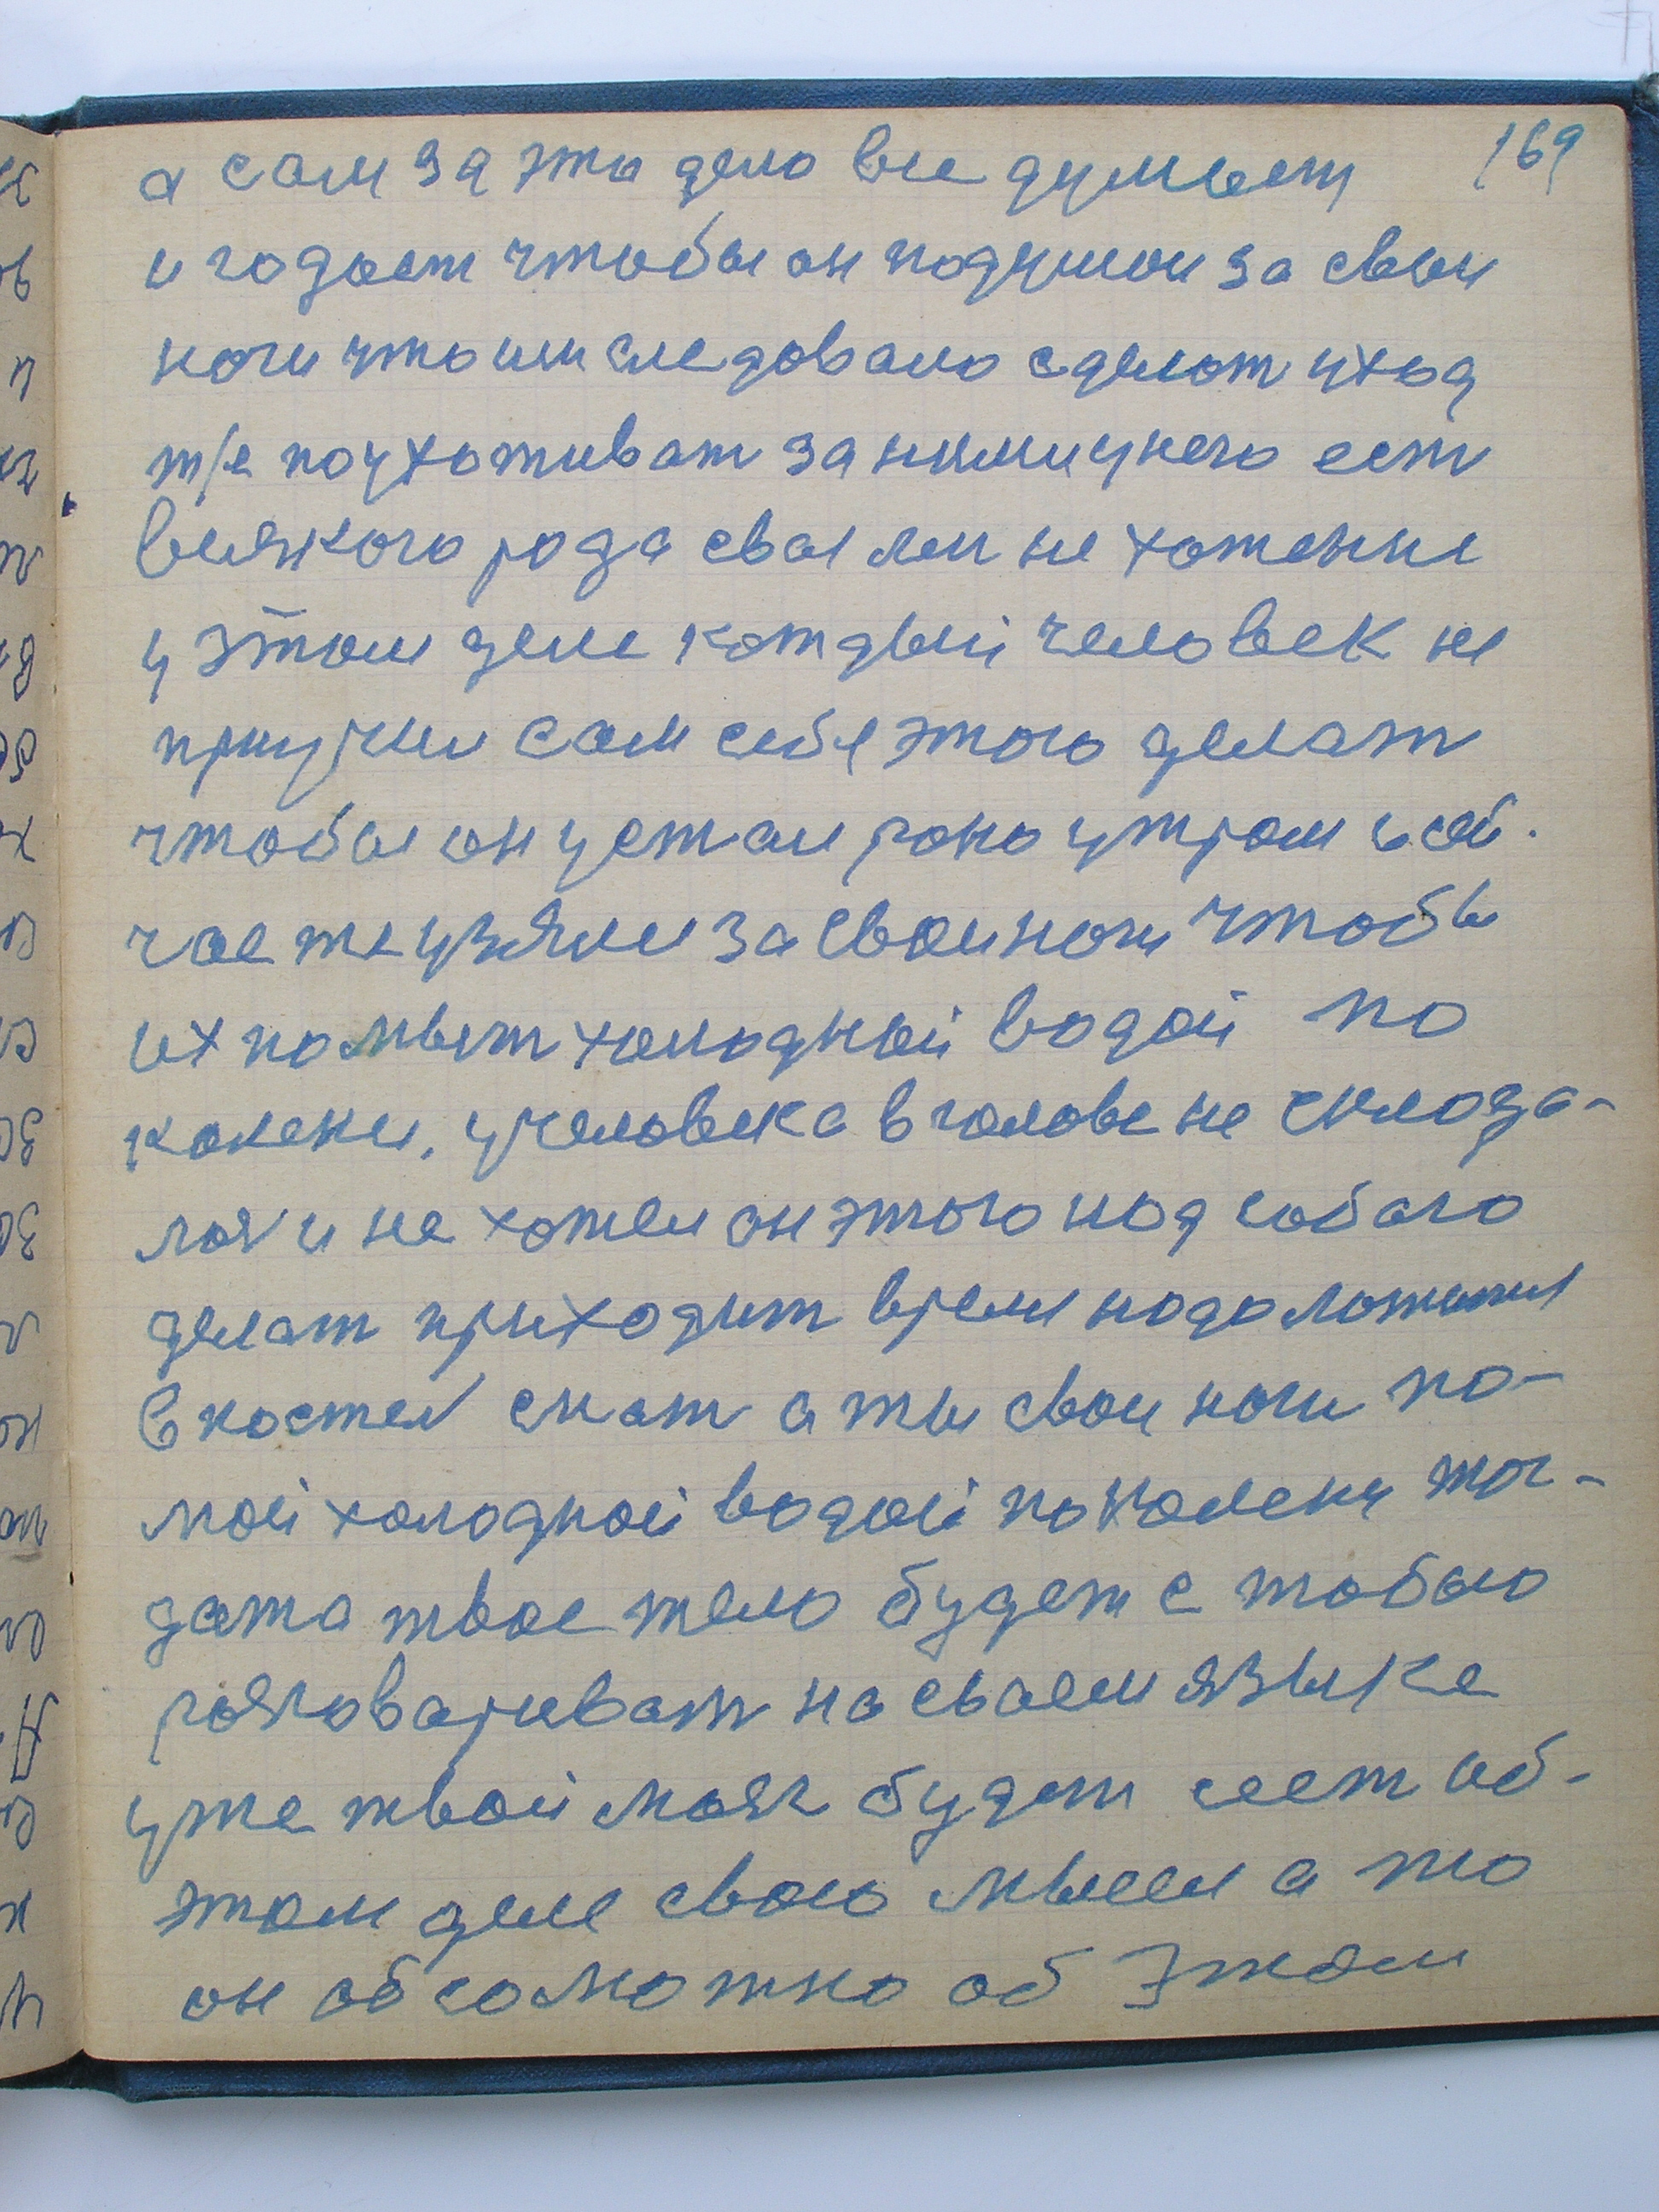 169
а сам за эты дело все думаем
и годоет чтобы он подумои за свои
ноги что им следовало сделат уход
т/е поухоживат за ними унего ест
всякого рода своя лен не хотение
у этом деле каждый человек не
приучил сам себя этого делат
чтобы он устал рано утром и сей.
час же узялся за свои ноги чтобы
их помыт холодной водой по
колени. у человека в голове не склада-
лоя и не хотел он этого над собого
делат приходит время надо ложится
в постел спат а ты свои ноги по-
мой холодной водой по колени тог-
дата твое тело будет с тобою
разговариват на своем языке
уже твой мозг будет сеет об-
этом деле свою мысел а то
он абсолютно об этом